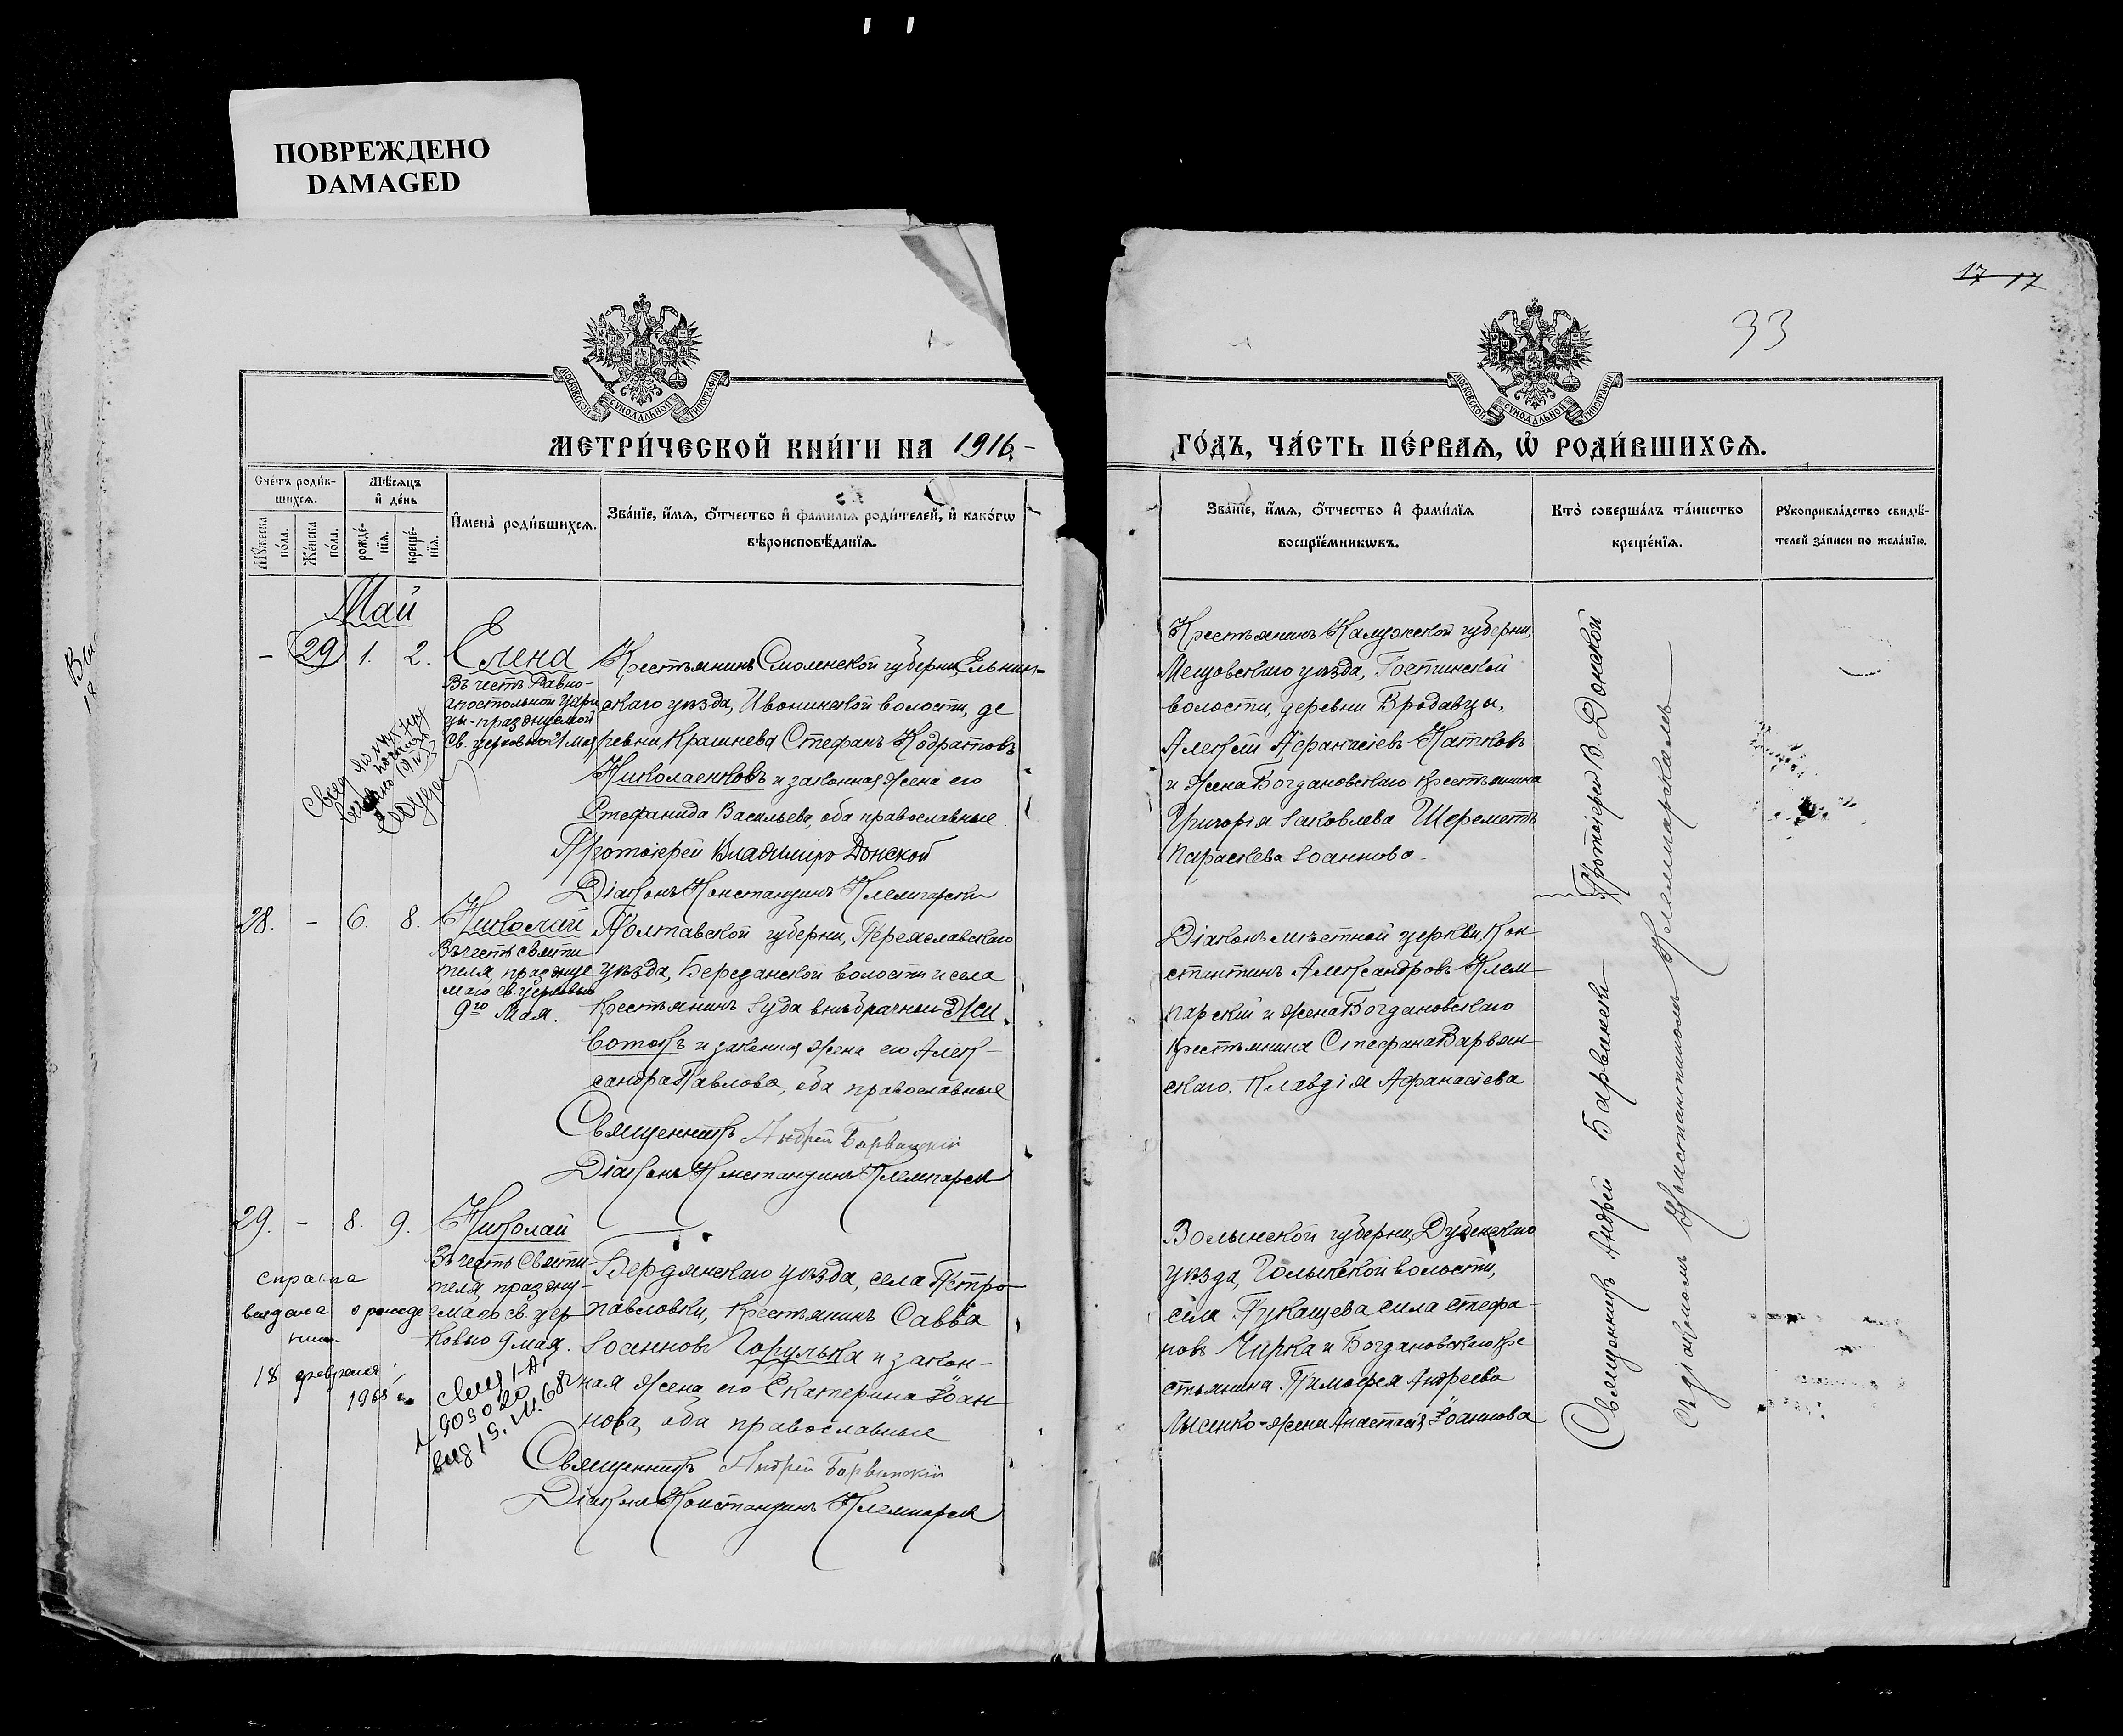 ПОВРЕЖДЕНО
DAMAGED
17 17
93
МОСКОВСКОЙ СУНОДАЛЬНОЙ ТИПОГРАФІИ
МОСКОВСКОЙ СУНОДАЛЬНОЙ ТИПОГРАФІИ
МЕТРИ́ЧЕСКОЙ КНИ́ГИ НА 1916
ГО́ДЪ, ЧА́СТЬ ПЕ́РВАѦ, Ѡ РОДИ́ВШИХСѦ.
Сче́тъ роди́в-
шихсѧ.
Мꙋ́жеска по́ла.
Же́нска по́ла.
Мѣ́сѧцъ
и҆ де́нь
рожде́-
нїѧ.
креще́-
нїѧ.
И҆мена̀ роди́вшихсѧ.
Зва́нїе, и҆́мѧ, ѻ҆́тчество и҆ фами́лїѧ роди́телей, и҆ како́гѡ
вѣроисповѣ́данїѧ.
Зва́нїе, и҆́мѧ, ѻ҆́тчество и҆ фами́лїѧ
воспрїе́мникѡвъ.
Кто̀ соверша́лъ та́инство
креще́нїѧ.
Рꙋкоприкла́дство свидѣ́-
телей за́писи по жела́нїю.
Май
– 29 1. 2. Елена
Въ честь Равно-
апостольной цари
цы - празднуемой
Св. церковію 21 мая
Крестьянинъ Смоленской губерніи, Ельнин-
скаго уѣзда, Ивонинской волости, де
ревни Крашнева Стефанъ Кодратовъ
Николаенковъ и законная жена его
Стефанида Васильева, оба православные
Протоіерей Владиміръ Донской
Діаконъ Константинъ Клемпарскій
Крестьянинъ Калужской губерніи,
Мещовскаго уѣзда, Гостинской
волости, деревни Бродавцы,
Алексій Афанасіевъ Катковъ
и жена Богдановскаго крестьянина
Григорія Іаковлева Шереметъ
Параскева Іоаннова.
Протоіерей В. Донской
28. – 6. 8. Николай
Въ честь святи
теля, празднуе
маго св. церковью
9го Мая.
Полтавской губерніи, Переяславскаго
уѣзда, Березанской волости и села
крестьянинъ Іуда внѣбрачный Жи
вотокъ и законная жена его Алек-
сандра Павлова, оба православные
Священникъ Андрей Барвинскій
Діаконъ Константинъ Клемпарскій
Діаконъ мѣстной церкви, Кон
стантинъ Александровъ Клем-
парскій и жена Богдановскаго
крестьянина Стефана Варвян-
скаго. Клавдія Афанасіева
29. – 8. 9. Николай
Въ честь Святи-
теля, праздну-
емаго св. цер-
ковью 9 мая.
Бердянскаго уѣзда, села Петро-
павловки, крестьянинъ Савва
Іоанновъ Горулька и закон-
ная жена его Екатерина Іоан
нова, оба православные
Священникъ Андрей Барвинскій
Діаконъ Константинъ Клемпарскій
Волынской губерніи, Дубенскаго
уѣзда,
села сила Стефа-
новъ Чирка и Богдановскаго кре
стьянина Тимофея Андреева
Лысенко - жена Анастасія Іоаннова
Священникъ Андрей Барвинскій
съ діакономъ Константиномъ Клемпарскимъ
справка
выдана о рожде
нии
18 февраля
1968 г.